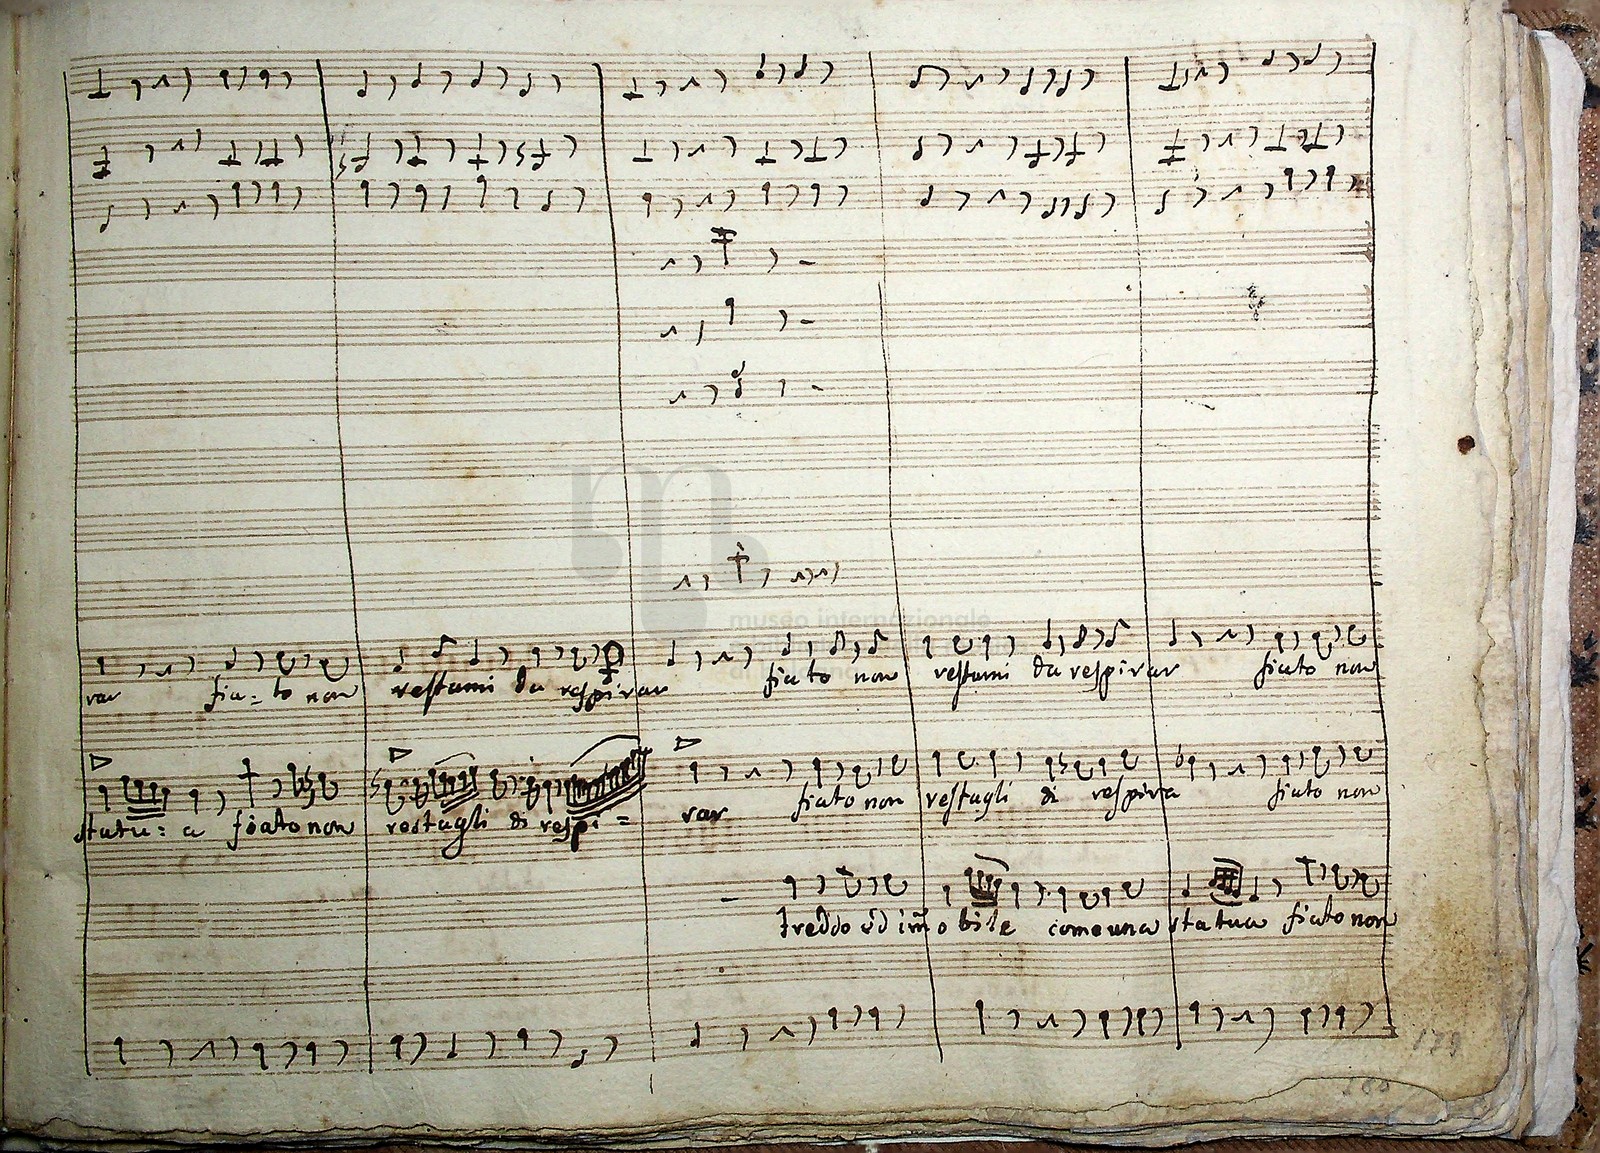 var fia=to non restami da respirar fiato non restami da respirar fiato non
statu=a fiato non restagli di respi= rar fiato non restagli di respira fiato non
freddo ed immobile come una statua fiato non
museo internazionale
179
180